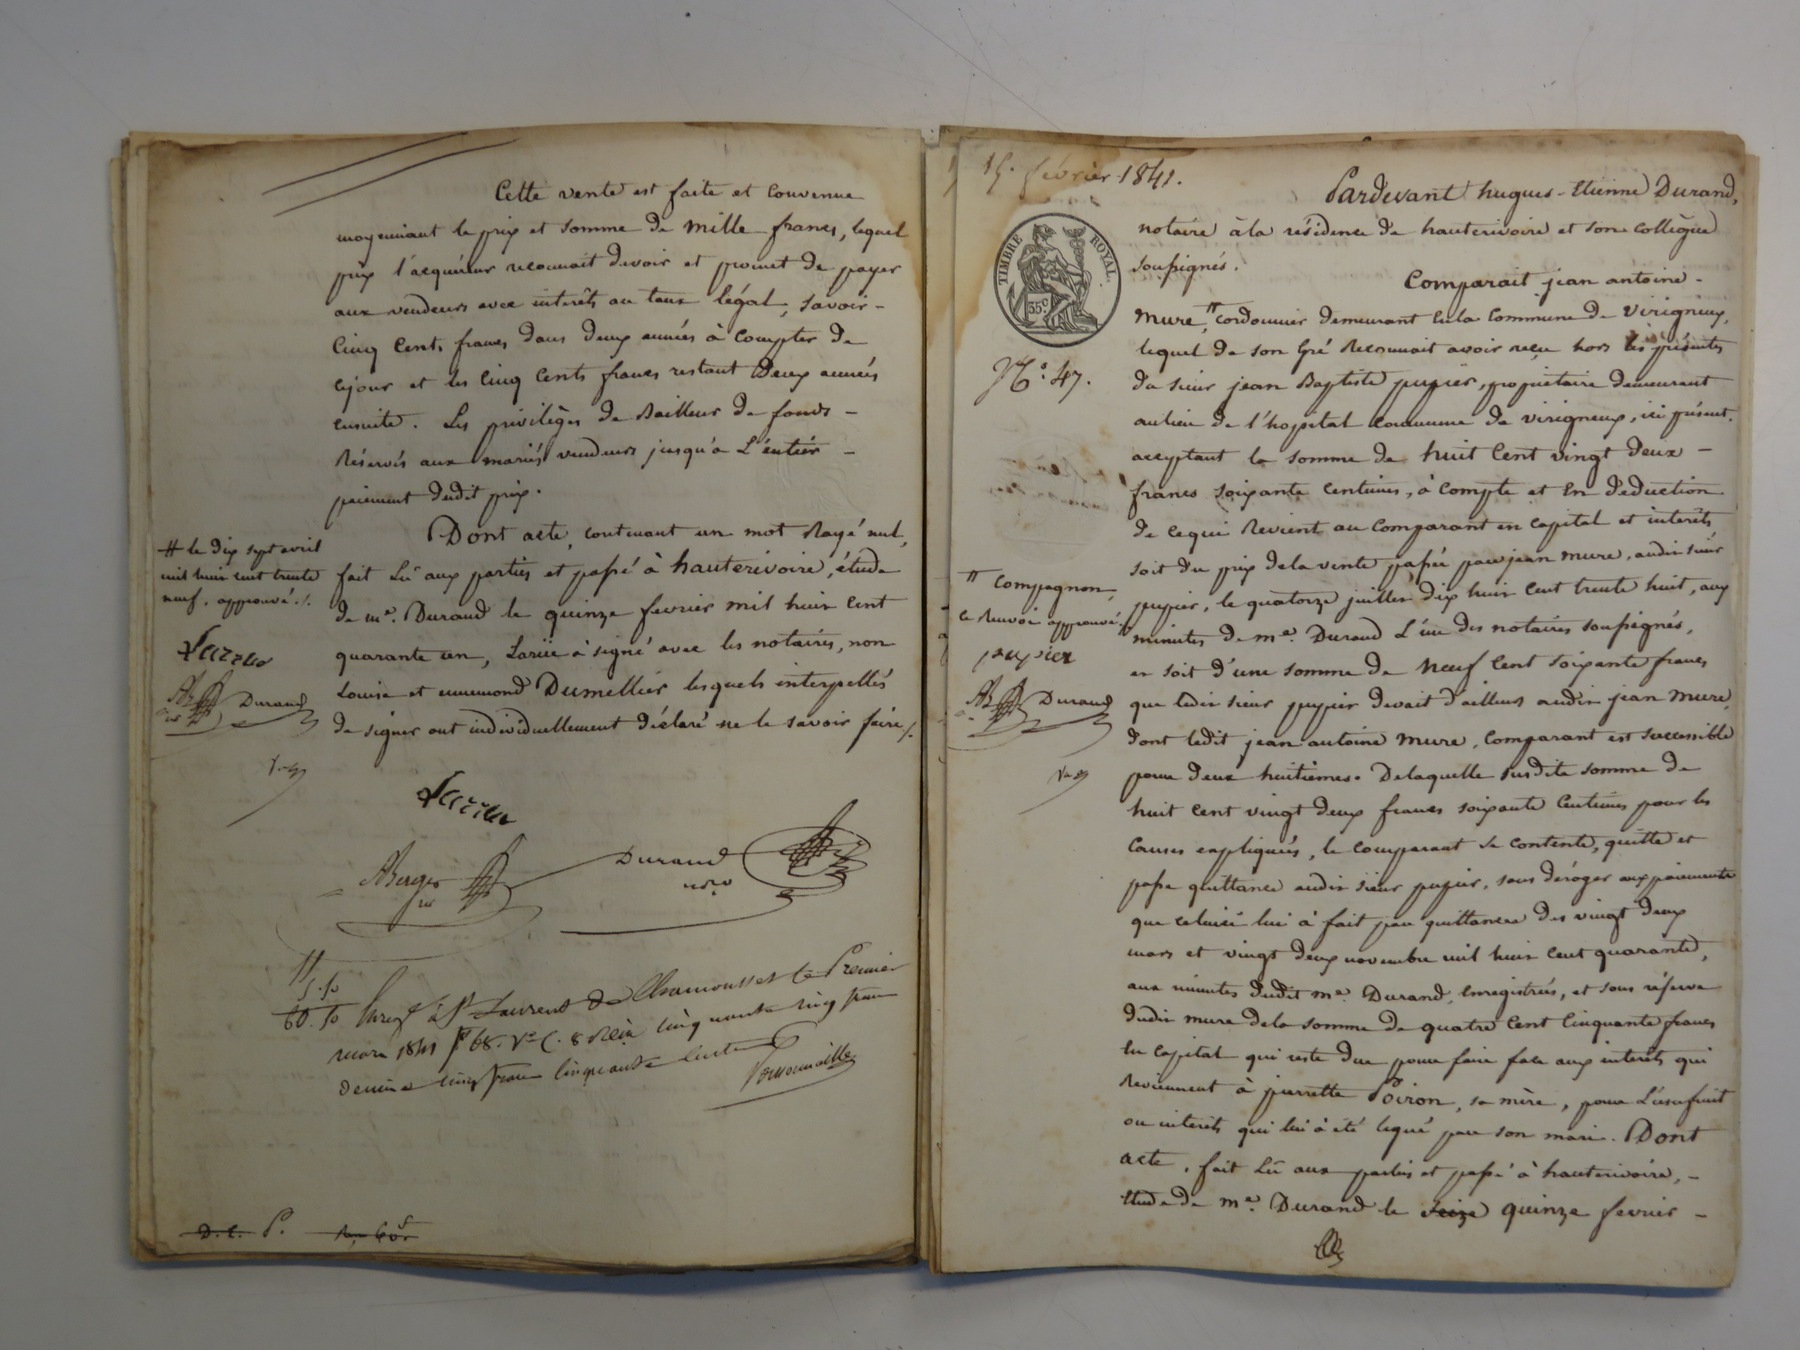 Cette vente est faite et convenue
moyennant le prix et somme de mille francs, lequel
prix l'acquéreur reconnait devoir et promet de payer
aux vendeurs avec intérêts au taux légal, savoir -
Cinq Cents francs dans deux années à Compter de
cejour et les cinq cents francs restant deux années
ensuite. Les privilèges de Bailleur de fonds -
Réservés aux mariés vendeurs jusqu'à L'entier -
paiement dudit prix.
Dont acte, contenant un mot Rayé nul,
fait Lû aux parties et passé à hauterivoire, étude
de me. Durand le quinze fevrier mil huit cent
quarante un, Larüe à signé avec les notaires, non
Louise et ennemond Dumellier lesquels interpellés
de signer ont individuellement déclaré ne le savoir faire /.
# le dix sept avril
mil huit cent trente
neuf. approuvé ./.
Durand
Berger
Durand
nore
5.50
60.50 Enregé à St Laurent de Chamousset le Premier
mars 1841 fo 68. Vo C. 8 Reçu cinquante cinq francs
decime cinq francs cinquante centimes
D.E. P.
15. février 1841.
TIMBRE ROYAL
35 c.
No. 47.
Pardevant hugues-Etienne Durand,
notaire àla résidence de hauterivoire et son collègue
soussignés.
Comparait jean antoine -
mure, " cordonnier demeurant en la Commune de Virigneux,
lequel de son Gré Reconnait avoir reçu hors les présentes
du sieur jean Baptiste pupier, propriétaire demeurant
aulieu de l'hopital commune de virigneux, ici présent.
acceptant la somme de huit Cent vingt deux -
francs soixante centimes, à compte et En déduction
de cequi Revient au Comparant en capital et intérêts
soit du prix dela vente passée par jean mure, audit sieur
pupier, le quatorze juillet dix huit cent trente huit, aux
minutes de me. Durand L'un des notaires soussignés,
et soit d'une somme de neuf Cent soixante francs
que ledit sieur pupier devait d'ailleurs audit jean mure,
dont ledit jean antoine mure, Comparant est successible
pour deux huitièmes. Delaquelle susdite somme de
huit cent vingt deux francs soixante Centimes pour les
Causes expliquées, le comparant se contente, quitte et
passe quittance audit sieur pupier, sans déroger aux paiements
que celuici lui à fait par quittances des vingt deux
mars et vingt deux novembre mil huit cent quarante,
aux minutes dudit me. Durand, Enregistrées, et sous réserve
dudit mure dela somme de quatre Cent Cinquante francs
En Capital qui reste due pour faire face aux intérêts qui
Reviennent à pierrette Poiron, sa mère, pour L'usufruit
ou intérêts qui lui à été légué par son mari. Dont
acte, fait Lû aux parties et passé à hauterivoire, -
Etude de me. Durand le seize quinze fevrier -
" Compagnon,
le Renvoi approuvé./.
pupier
Durand